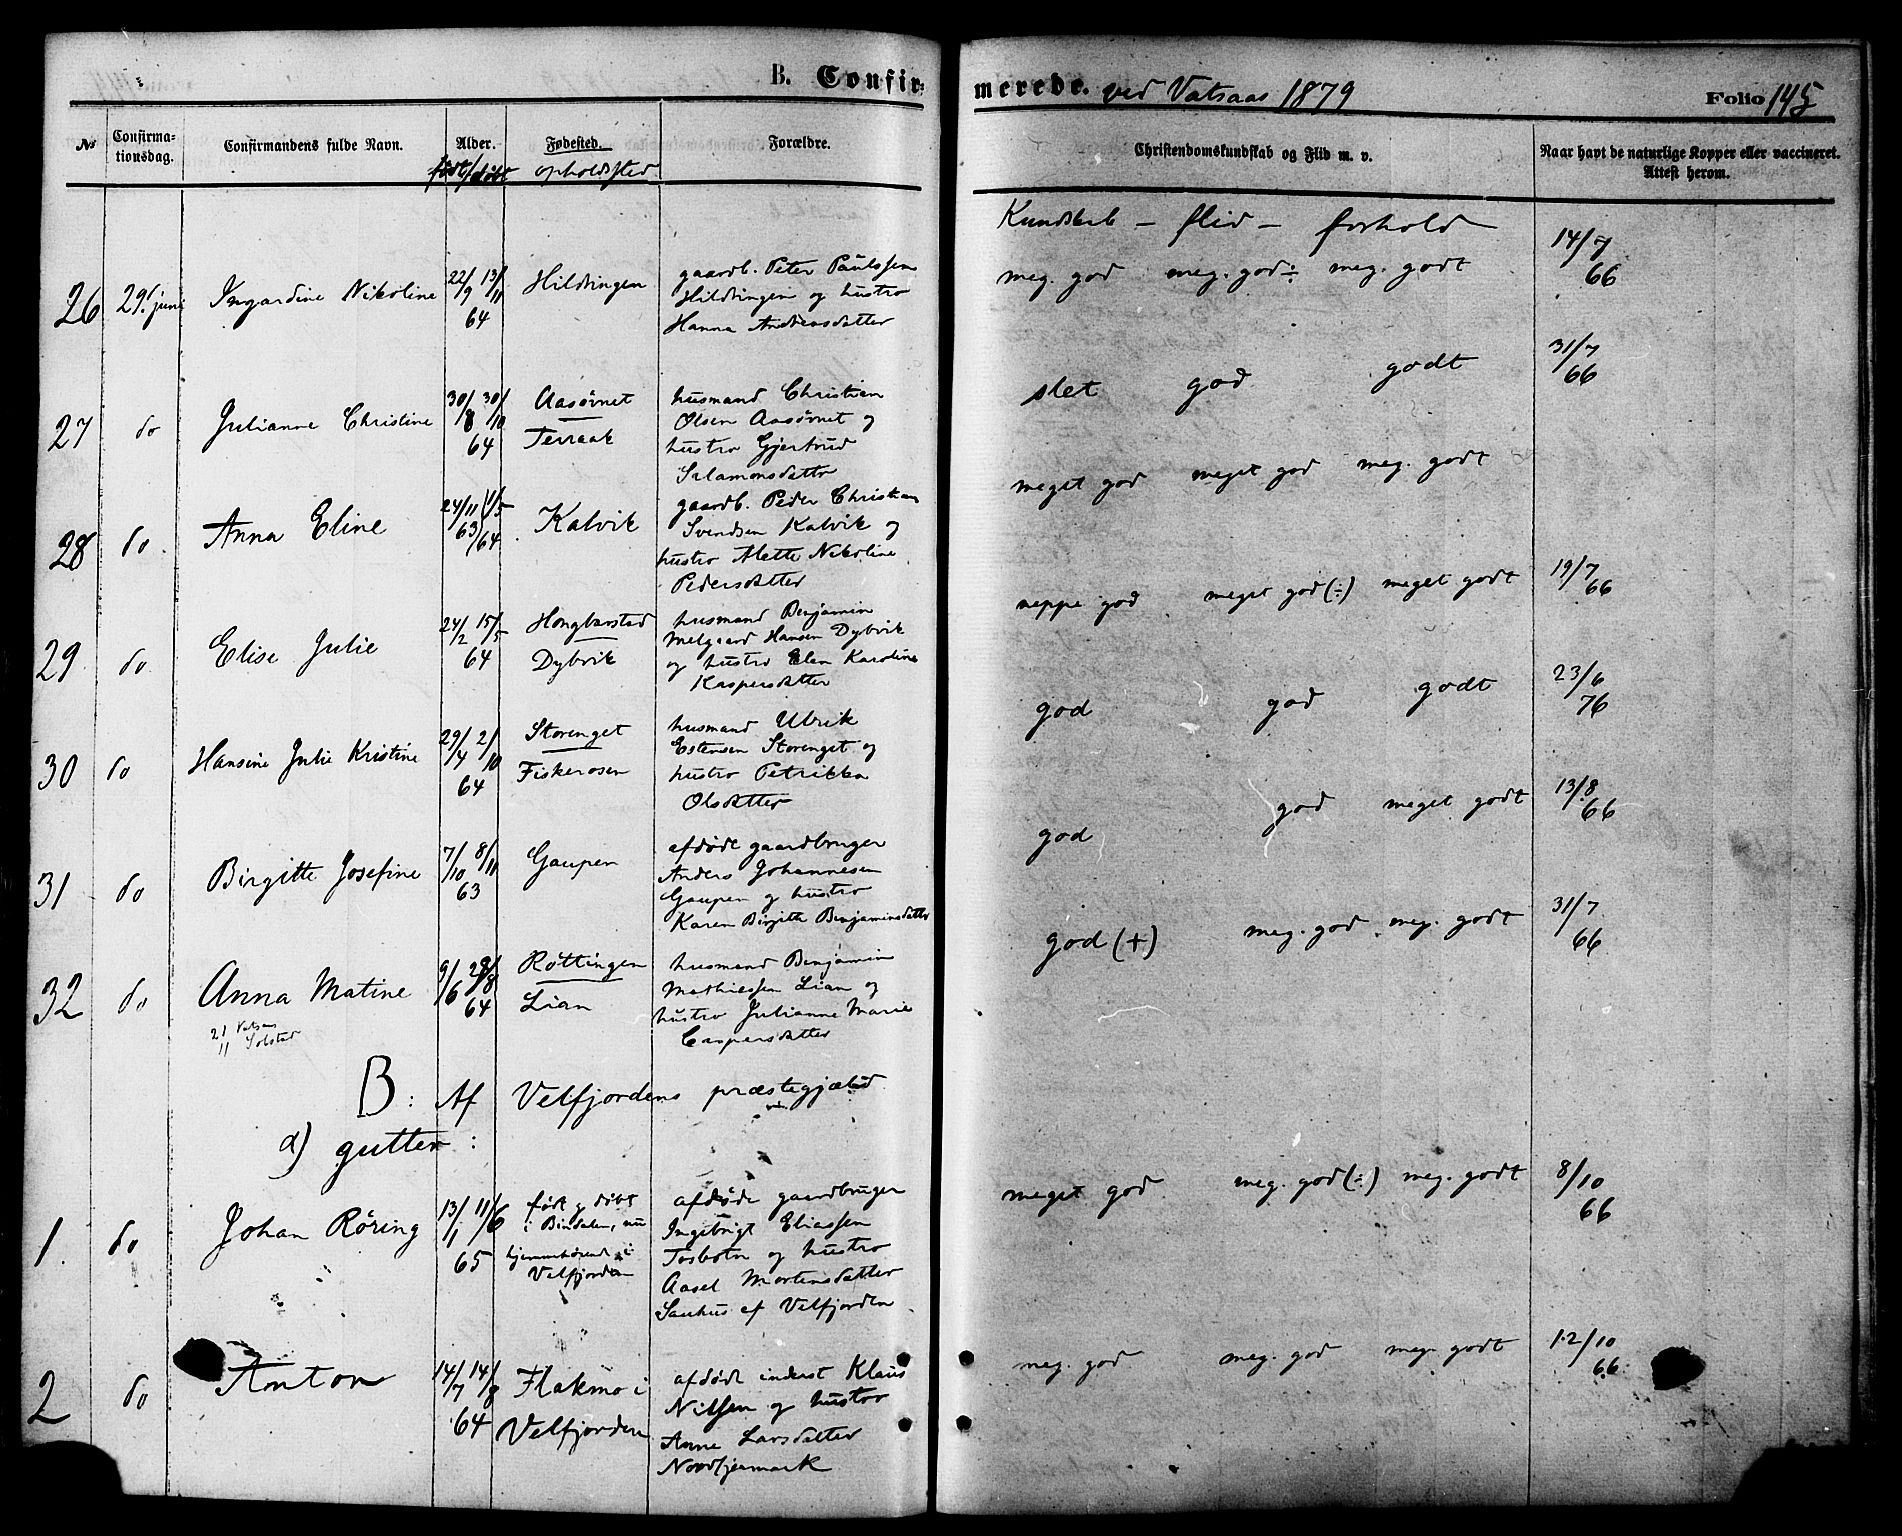 B. Confirmerede. ved Vatsaas 1879 Folio 145
№ Confirmationsdag. Confirmandens fulde Navn. Alder. født/døbt Fødested. opholdssted Forældre. Christendomskundskab og Flid m. v. Naar havt de naturlige Kopper eller vaccineret. Attest herom.
Kundskab – flid – forhold
26 29. juni Ingardine Nikoline 22/9 13/11 64 Hildringen
gaardb. Peter Paulssen
Hildringen og hustro
Hanna Andreasdatter
meg. god meg. god÷ meg. godt 14/7 66
27 do Julianne Christine 30/8 30/10 64 Aasørnet
Terraak
husmand Christian
Olsen Aasørnet og
hustro Gjertrud
Salamonsdatter
slet god godt 31/7 66
28 do. Anna Eline 24/11 63 (1/5 64 Kalvik
gaardb. Peder Christian
Svendsen Kalvik og
hustro Mette Nikoline
Pedersdatter
meget god meget god meg. godt
29 do. Elise Julie 24/2 15/5 64 Hongbarstad
Dybvik
husmand Benjamin
Melgaard Hansen Dybvik
og hustro Elen Karoline
Kaspersdatter
neppe god meget god (÷) meget godt 19/7 66
30 do Hansine Julie Kristine 29/4 2/10 64 Storenget
Fiskerosen
husmand Ulrik
Estensen Storenget og
hustro Petrikka
Olsdatter
god god godt 23/6 76
31 do Birgitte Josefine 7/10 8/11 63 Gaupen
afdøde gaardbruger
Anders Johannesen
Gaupen og hustro
Karen Birgitte Benjaminsdatter
god god meget godt 13/8 66
32 do Anna Matine 9/6 28/8 64 Røttingen
Lian
husmand Benjamin
Mathiessen Lian og
hustro Julianne Marie
Caspersdatter
god (+) meg. god meg. godt 31/7 66
21 Vatsaas
11 Solstad
B: Af Velfjordens præstegjæld
a) gutter:
1. do Johan Røring 13/1 11/6 65
født og døbt
i Bindalen, nu
hjemmehørende i
Velfjorden
afdøde gaardbruger
Ingebrigt Eliassen
Tosbotn og hustro
Aasel Mortensdatter
Sauhus af Velfjorden
meget god meg. god (÷) meg. godt 8/10 66
2 do Anton 14/7 14/8 64 Flakmo i
Velfjorden
afdøde inderst Klaus
Nilssen og hustro
Anne Larsdatter
Nordfjermark
meg. god meg. god meg. godt 12/10 66